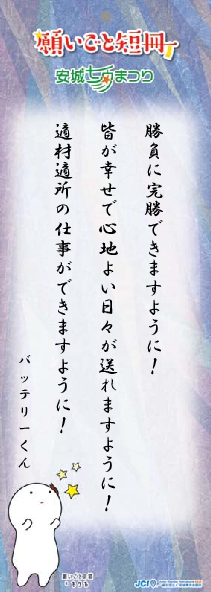 願いごと短冊
安城七夕まつり
勝負に完勝できますように！
皆が幸せで心地よい日々が送れますように！
適材適所の仕事ができますように！
バッテリーくん
願いごと短冊
JCI